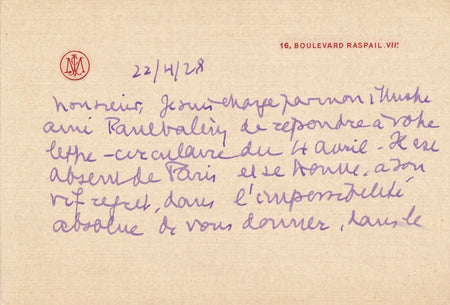 16, BOULEVARD RASPAIL. VIIᵉ
22/4/28
Monsieur, Je suis chargé par mon illustre
ami Paul Valéry de répondre à votre
lettre-circulaire du 4 avril. Il est
absent de Paris et se trouve, à son
vif regret, dans l'impossibilité
absolue de vous donner, dans le